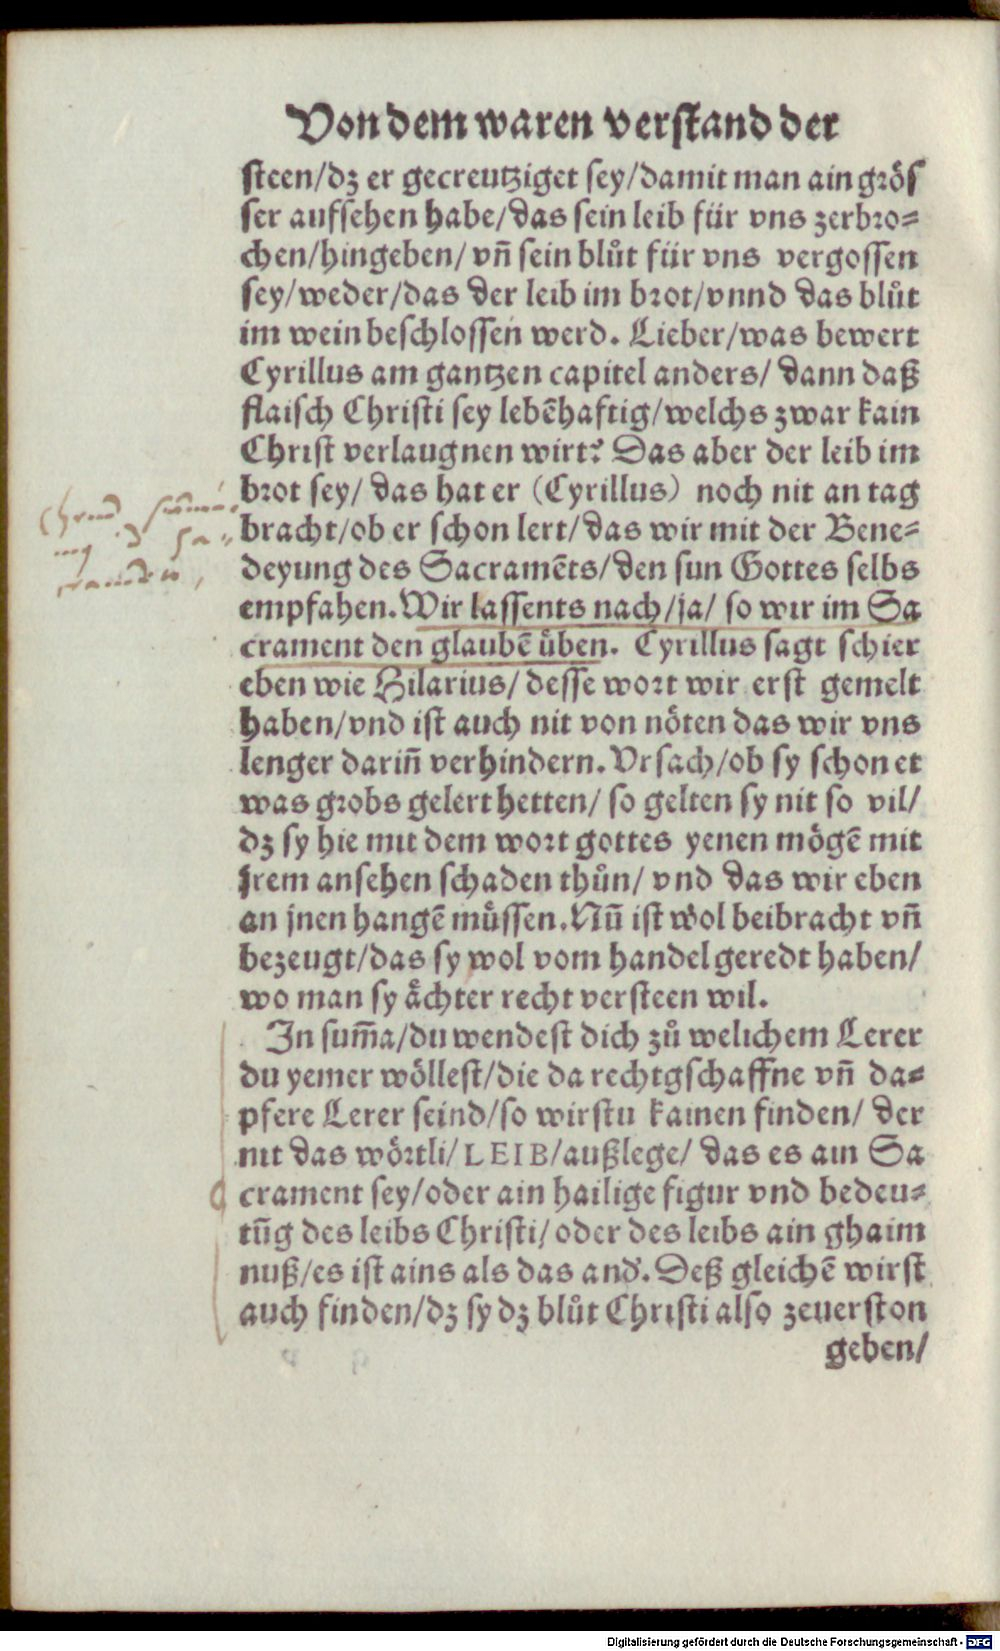 Von dem waren verstand der
steen/dz er gecreutziget sey/damit man ain grös
ser aufsehen habe/das sein leib für vns zerbro⸗
chen/hingeben/ vn̄ sein blůt für vns vergossen
sey/weder/das der leib im brot/vnnd das blůt
im wein beschlossen werd. Lieber/was bewert
Cyrillus am gantzen capitel anders/ dann daß
flaisch Christi sey lebēhaftig/welchs zwar kain
Christ verlaugnen wirt? Das aber der leib im
brot sey/ das hat er (Cyrillus) noch nit an tag
bracht/ob er schon lert/das wir mit der Bene⸗
deyung des Sacramēts/den sun Gottes selbs
empfahen. Wir lassents nach/ja/ so wir im Sa
crament den glaubē üben. Cyrillus sagt schier
eben wie Hilarius/ desse wort wir erst gemelt
haben/vnd ist auch nit von nöten das wir vns
lenger darin̄ verhindern. Vrsach/ob sy schon et
was grobs gelert hetten/ so gelten sy nit so vil/
dz sy hie mit dem wort gottes yenen mögē mit
jrem ansehen schaden thůn/ vnd das wir eben
an jnen hangē müssen. Nū ist wol beibracht vn̄
bezeugt/das sy wol vom handel geredt haben/
wo man sy ächter recht versteen wil.
In sum̄a/du wendest dich zů welichem Lerer
du yemer wöllest/die da rechtgschaffne vn̄ da⸗
pfere Lerer seind/so wirstu kainen finden/ der
nit das wörtli/LEIB/außlege/ das es ain Sa
crament sey/oder ain hailige figur vnd bedeu⸗
tūg des leibs Christi/oder des leibs ain ghaim
nuß/es ist ains als das and'. Deß gleichē wirst
auch finden/dz sy dz blůt Christi also zeuerston
geben/
Digitalisierung gefördert durch die Deutsche Forschungsgemeinschaft - DFG